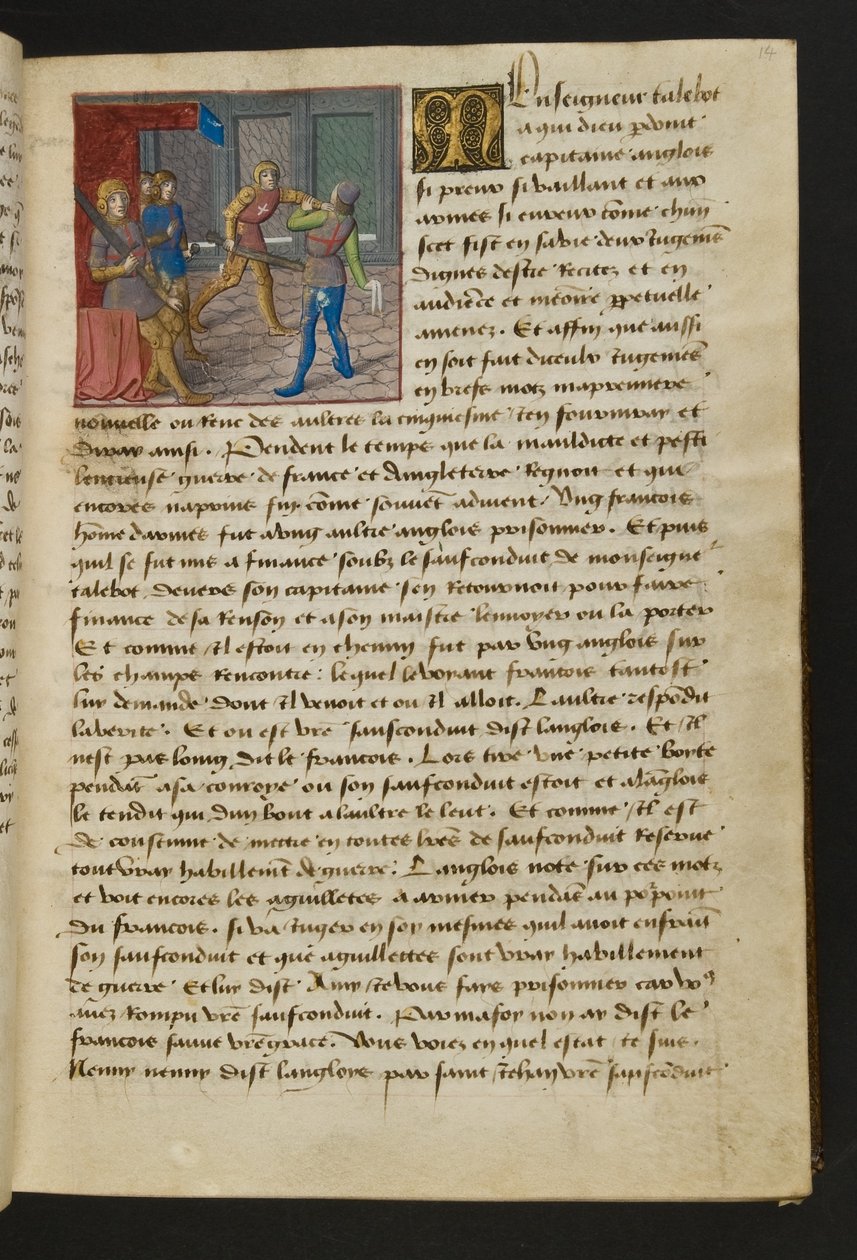 14
Monseigneur talebot
a qui dieu pdoint
capitaine anglois
si preux si vaillant et aux
armes si eureux comme chun
scet fist en sa vie deux jugemens
dignes destre recitez et en
audience et memoire ppetuelle
amenez . Et affin que aussi
en soit fait diceulx jugemens
en brefz motz ma premiere
nouuelle ou renc des aultres la cinquiesme jen fourniray et
diray ainsi . Pendent le temps que la mauldicte et pesti
lencieuse guerre de france et dangleterre regnoit et qui
encores na prins fin come souuet aduient . Ung francois
home darmes fut a ung aultre anglois prisonnier . Et puis
quil se fut mis a finance soubz le saufconduit de monseigne
talebot deuers son capitaine sen retournoit pour faire
finance de sa renson et a son maistre lenuoyer ou la porter
Et comme il estoit en chemin fut par ung anglois sur
les champs rencontre : lequel le voyant francois tantost
luy demande dont il venoit et ou il alloit . Laultre respodit
la verite . Et ou est vre saufconduit dist langlois . Et il
nest pas loing dit le francois . Lors tire une petite boyte
pendat a sa conroye ou son saufconduit estoit et a laglois
le tendit qui dun bout a laultre le leut . Et comme il est
de coustume de mettre en toutes lres de saufconduit reserue
tout vray habillemet de guerre . Langlois note sur ces motz
et voit encores les aguilletes a armer pendas au porpoint
du francois . si va juger en soy mesmes quil auoit enfraint
son saufconduit et que aguillettes sont vray habillement
de guerre Et luy dist Amy je vous fays prisonnier car vo9
auez rompu vre saufconduit . Par ma foy non ay dist le
francois sauue vre grace . Vous voiez en quel estat je suis .
Nenny nenny dist langloys par saint jehan vre saufconduit